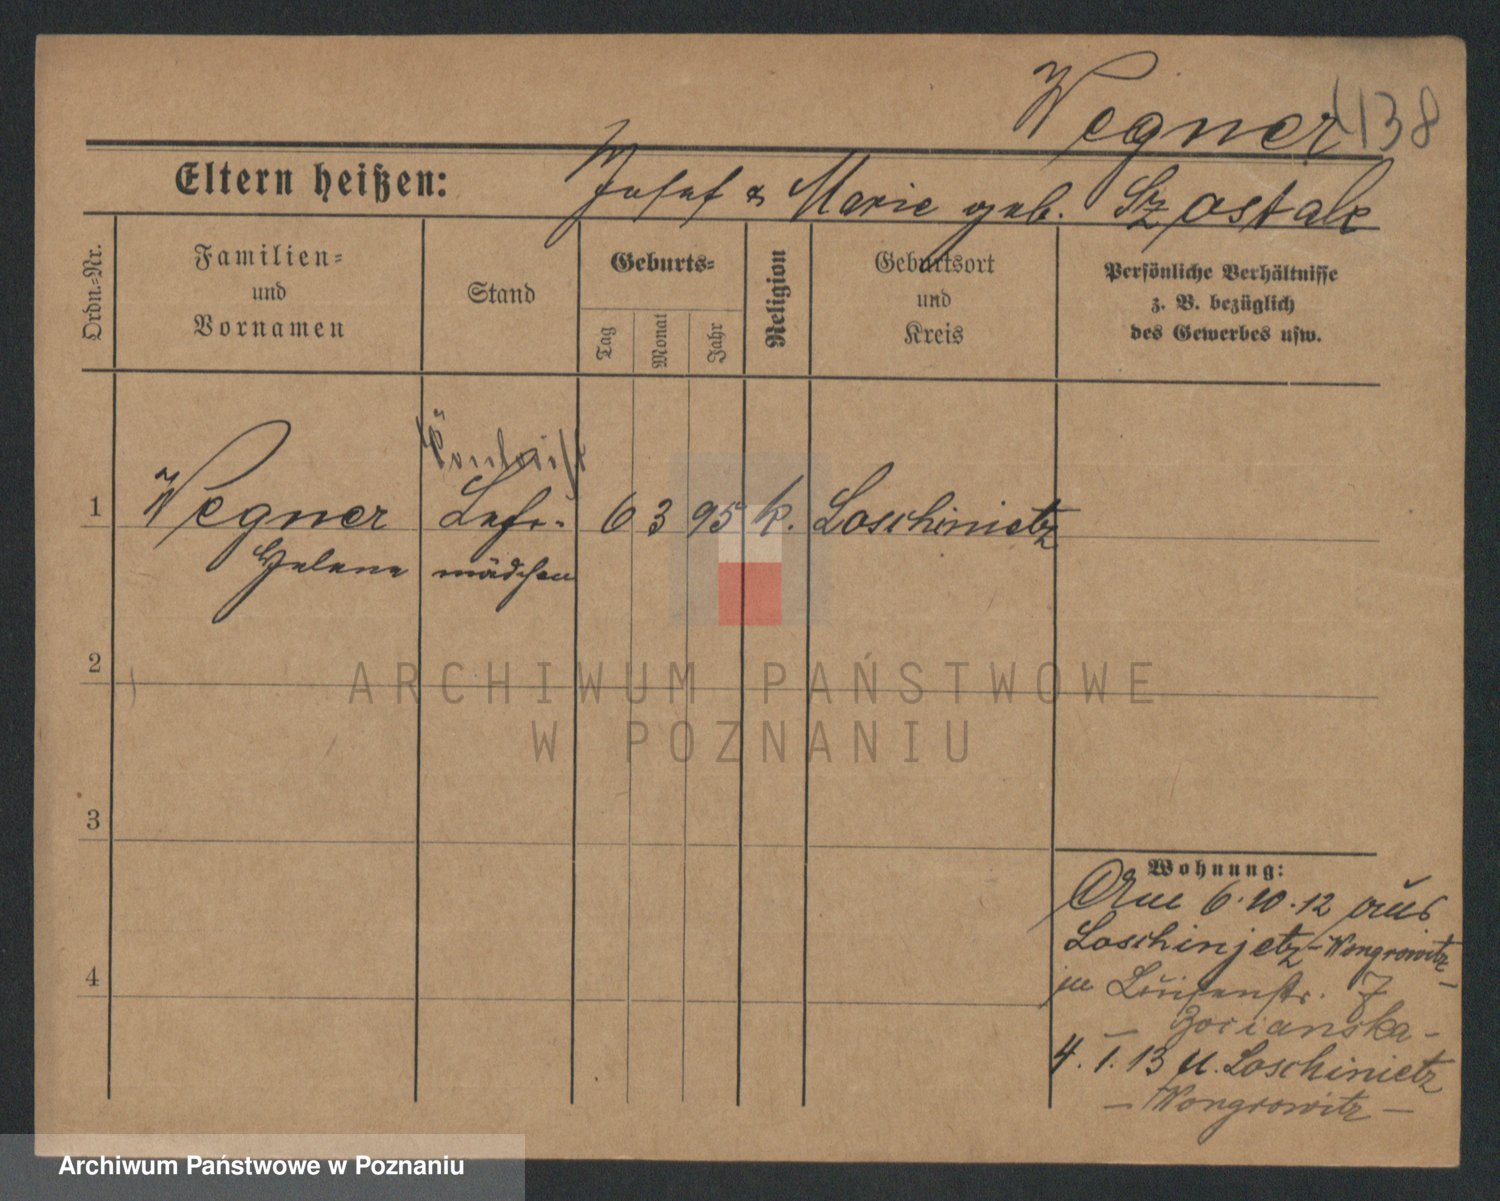 Wegner
138
Eltern heißen:
Josef & Marie geb. Szostak
Ordn.-Nr.
Familien-
und
Vornamen
Stand
Geburts-
Tag
Monat
Jahr
Religion
Geburtsort
und
Kreis
Persönliche Verhältnisse
z. B. bezüglich
des Gewerbes usw.
1
Wegner Lehr- 6 3 95 k. Loschinietz
Helene mädchen
2
ARCHIWUM PAŃSTWOWE
W POZNANIU
3
4
Wohnung:
Am 6.10.12 aus
Loschinjetz-Wongrowitz-
in Luisenstr. 7
4. 1. 13 n. Loschinietz
– Wongrowitz –
Archiwum Państwowe w Poznaniu